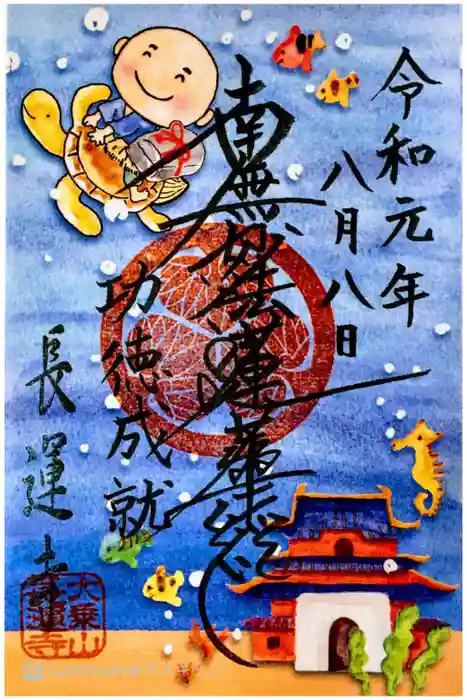 令和元年
八月八日
南無妙法蓮華経
功徳成就
長運寺
大乗山
長運寺